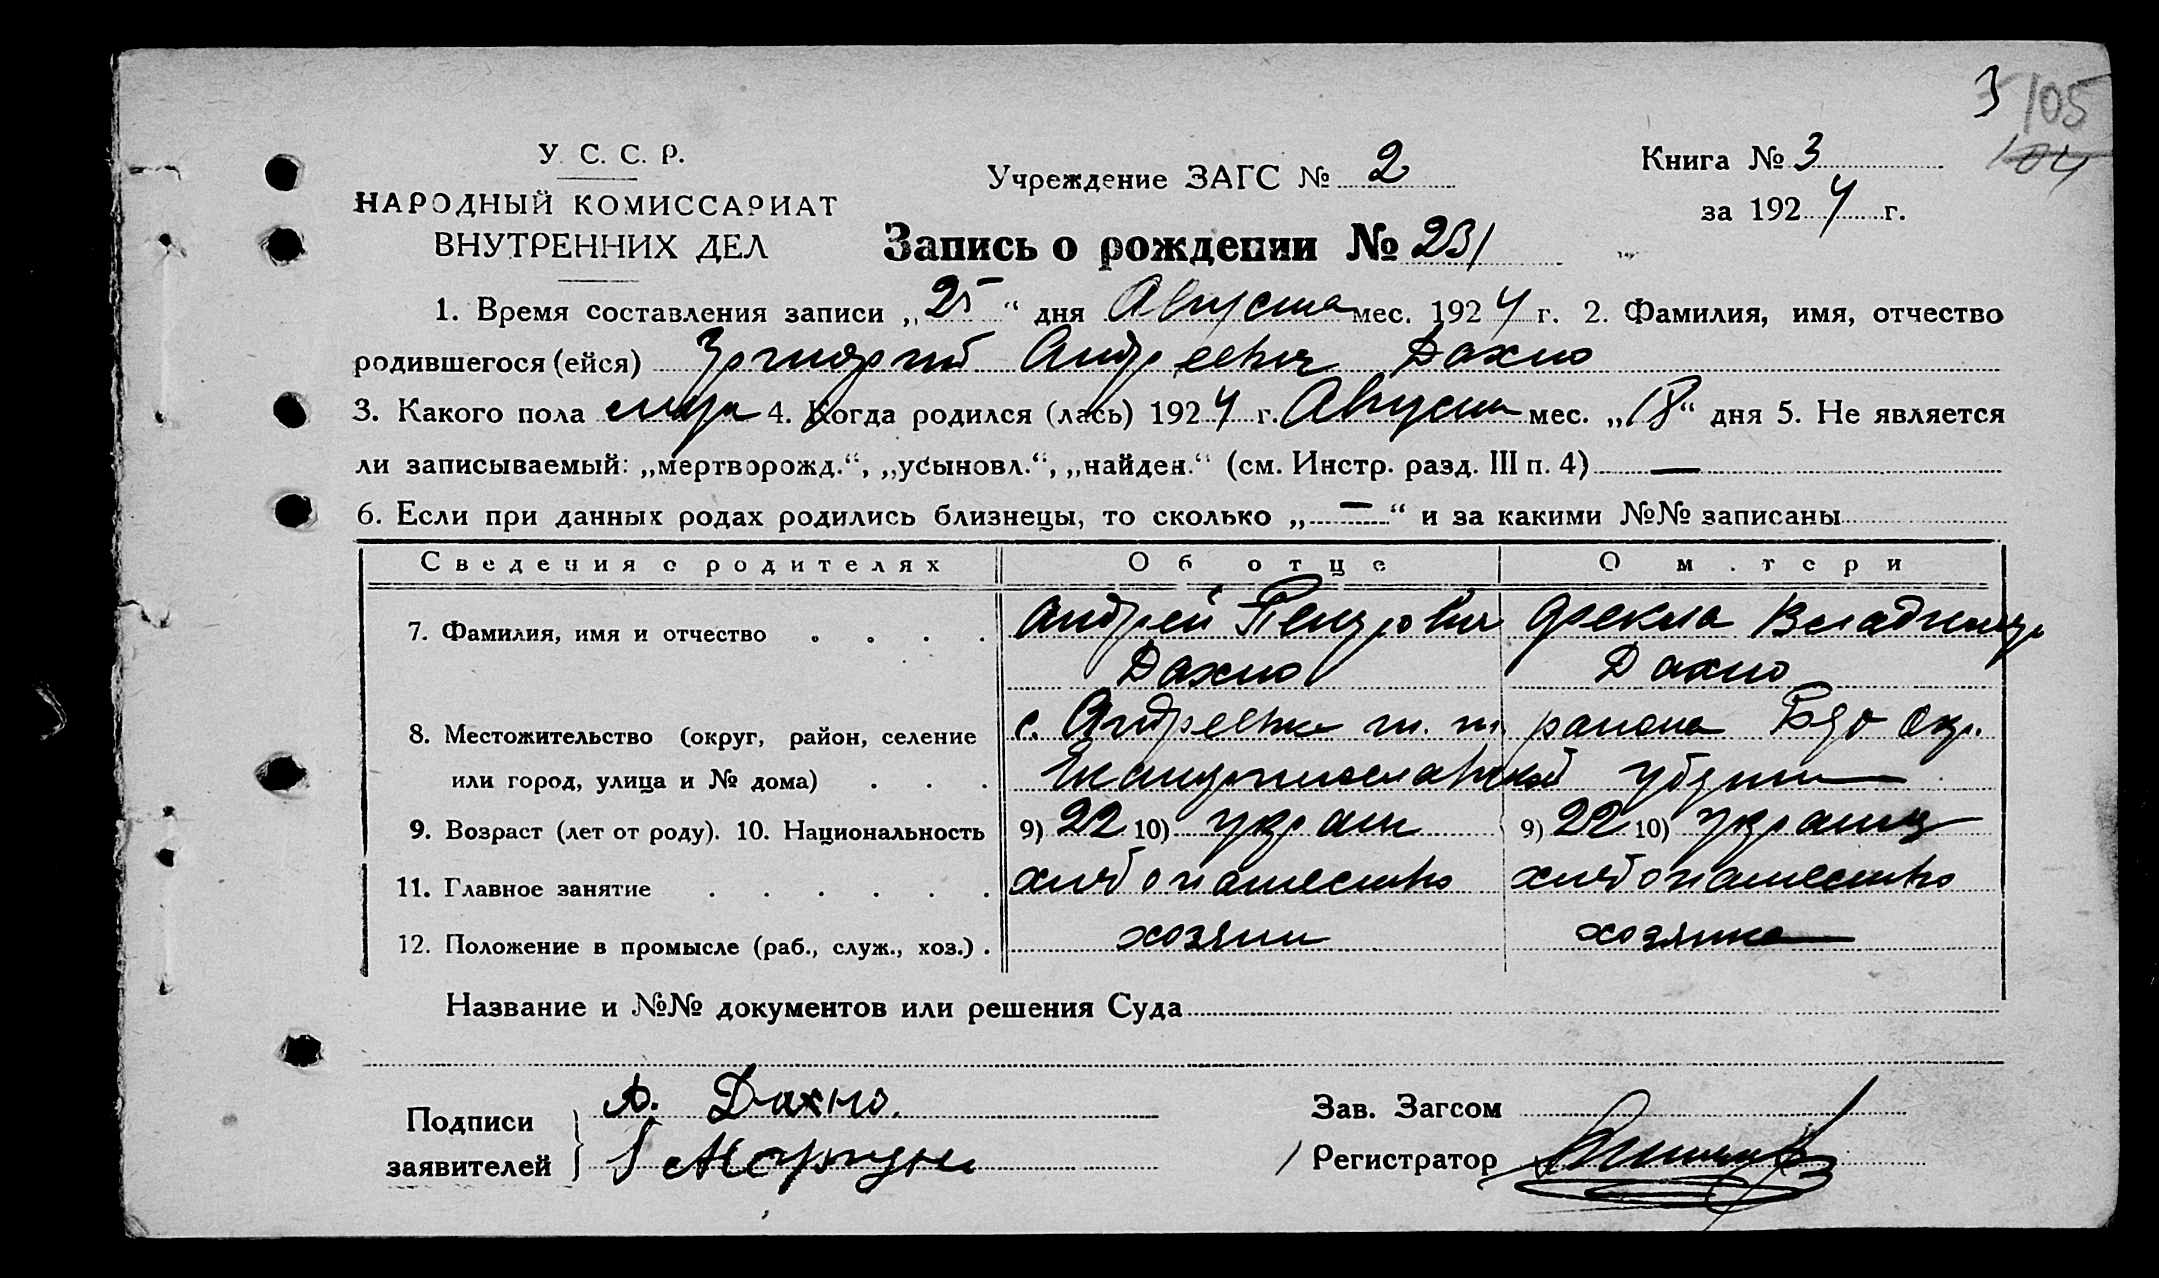 3 105
104
У. С. С. Р.
НАРОДНЫЙ КОМИССАРИАТ
ВНУТРЕННИХ ДЕЛ
Учреждение ЗАГС № 2
Книга № 3
за 1924 г.
Запись о рождении № 231
1. Время составления записи „25“ дня Августа мес. 1924 г. 2. Фамилия, имя, отчество
родившегося (ейся) Григорий Андреевич Дахно
3. Какого пола муж 4. Когда родился (лась) 1924 г. Августа мес. „18“ дня 5. Не является
ли записываемый: „мертворожд.“, „усыновл.“, „найден.“ (см. Инстр. разд. III п. 4) —
6. Если при данных родах родились близнецы, то сколько „—“ и за какими №№ записаны
Сведения о родителях Об отце О м.тери
7. Фамилия, имя и отчество Андрей Петрович Фекла
Дахно Дахно
8. Местожительство (округ, район, селение с. Андреевка района окр.
или город, улица и № дома) Екатеринославской губернии
9. Возраст (лет от роду). 10. Национальность 9) 22 10) украин 9) 22 10) украинц
11. Главное занятие хлебопашество хлебопашество
12. Положение в промысле (раб., служ., хоз.) хозяин хозяйка
Название и №№ документов или решения Суда
Подписи
заявителей
А. Дахно.
Зав. Загсом
Регистратор